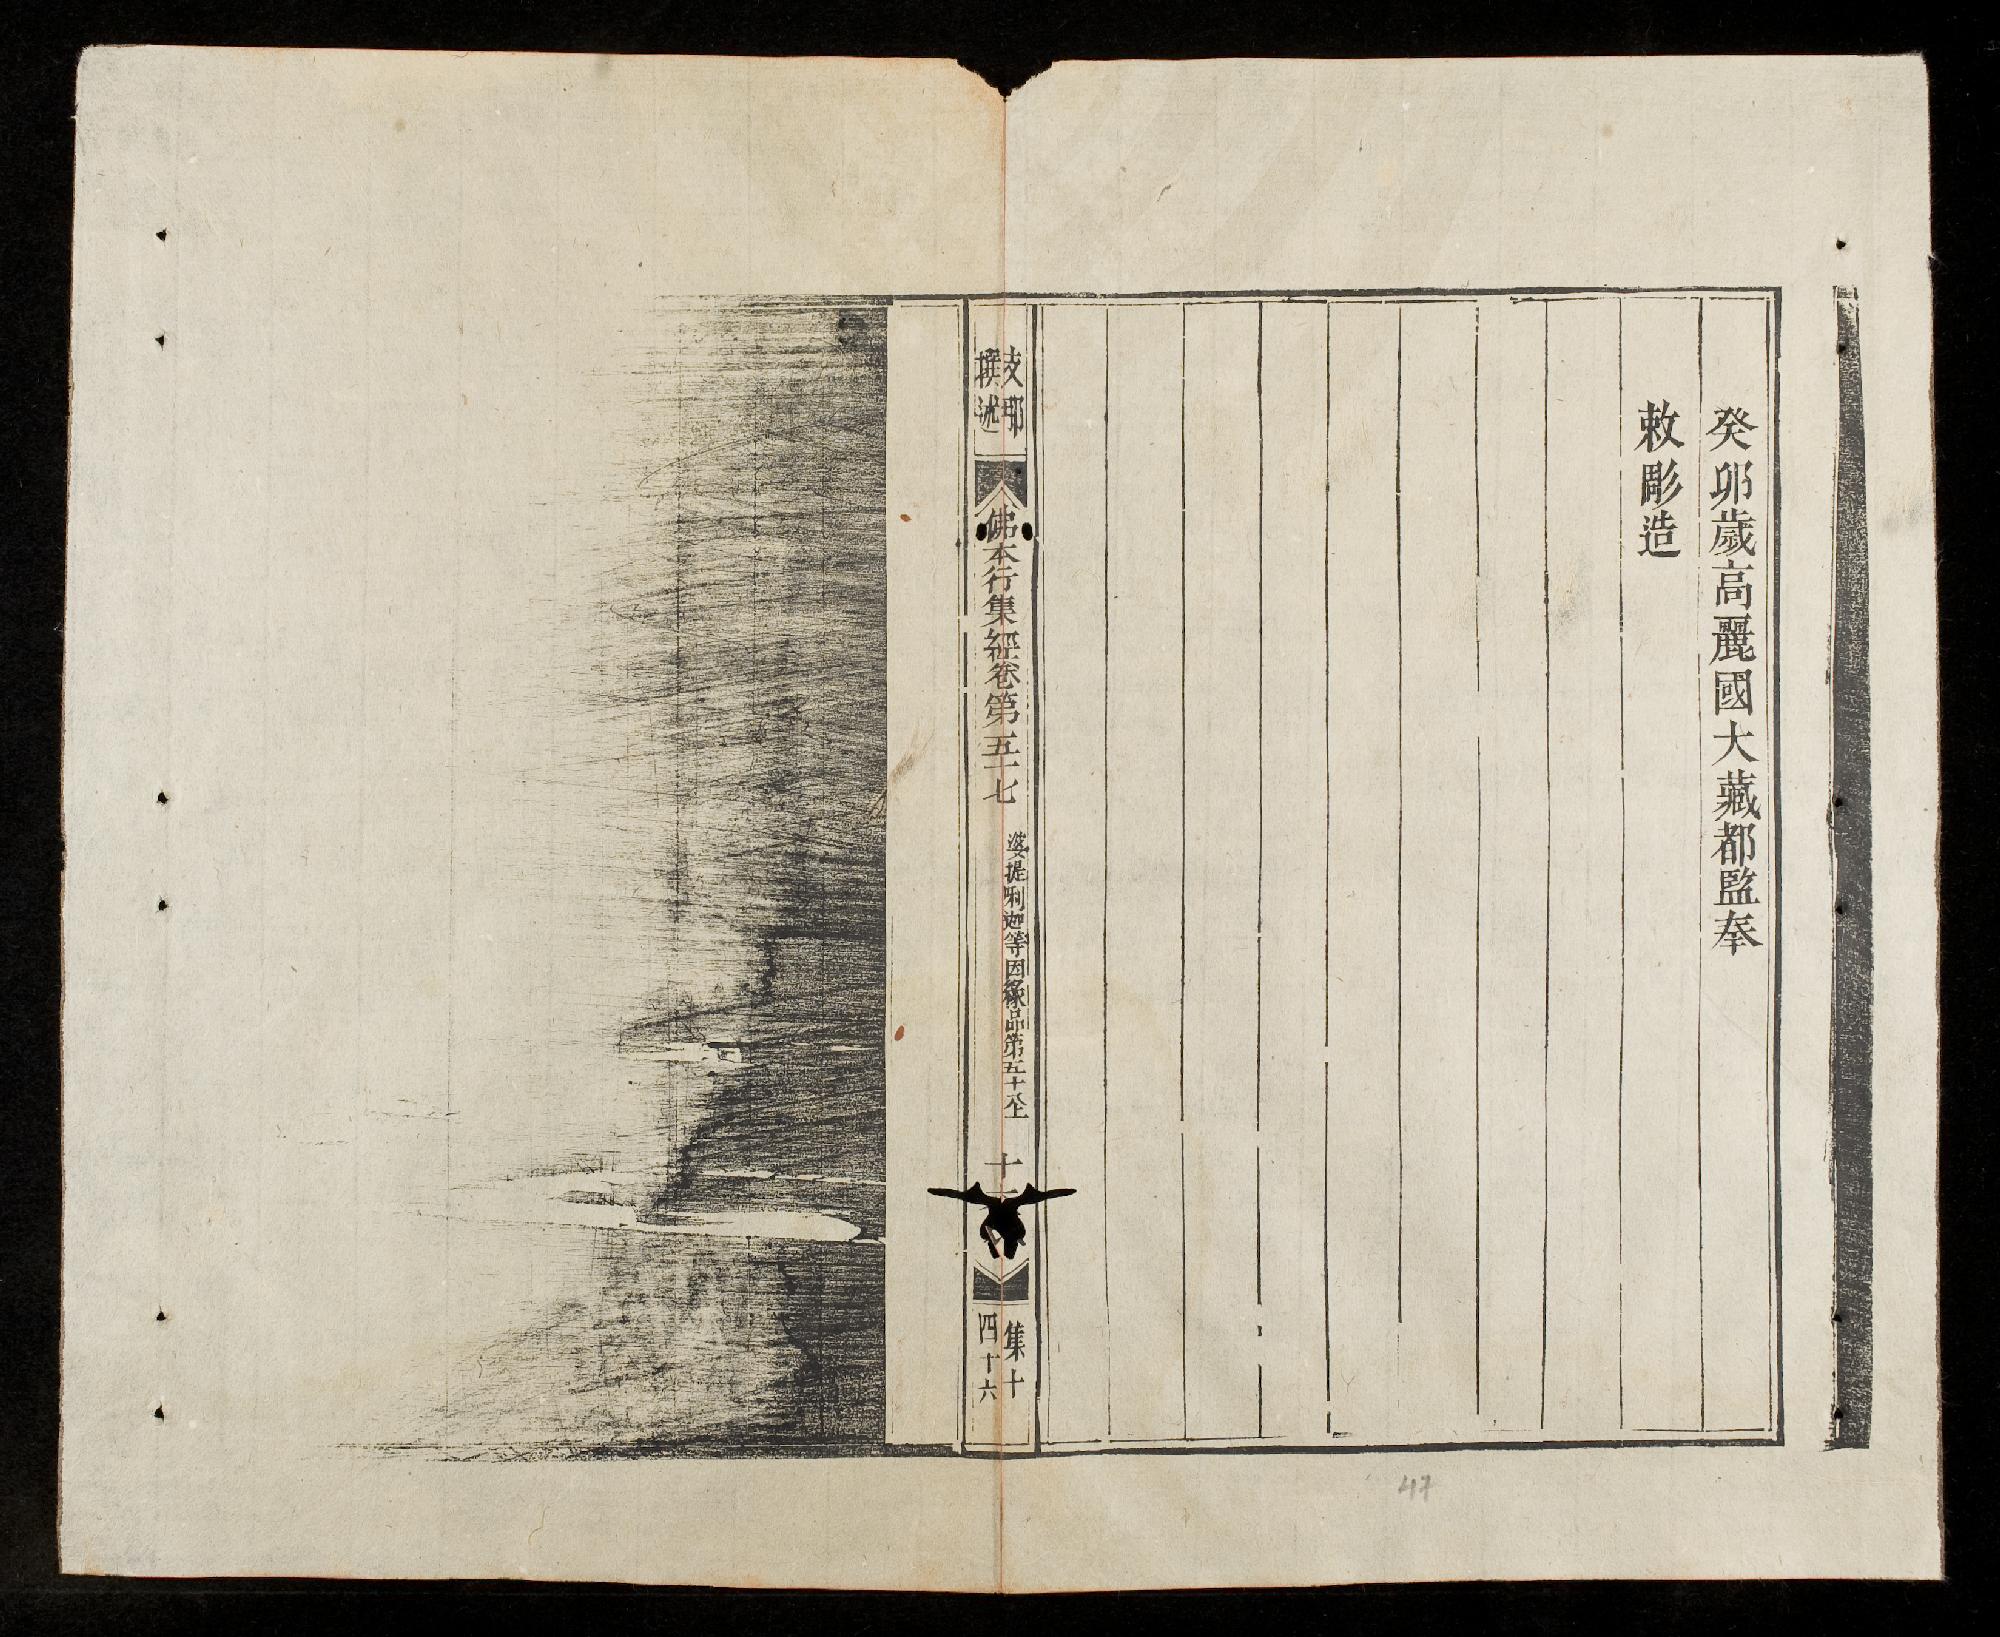 癸卯歲高麗國大藏都監奉
敕彫造
支那
撰述
佛本行集經卷第五十七
婆提唎迦等因緣品第五十八上
十
集十
四十六
47